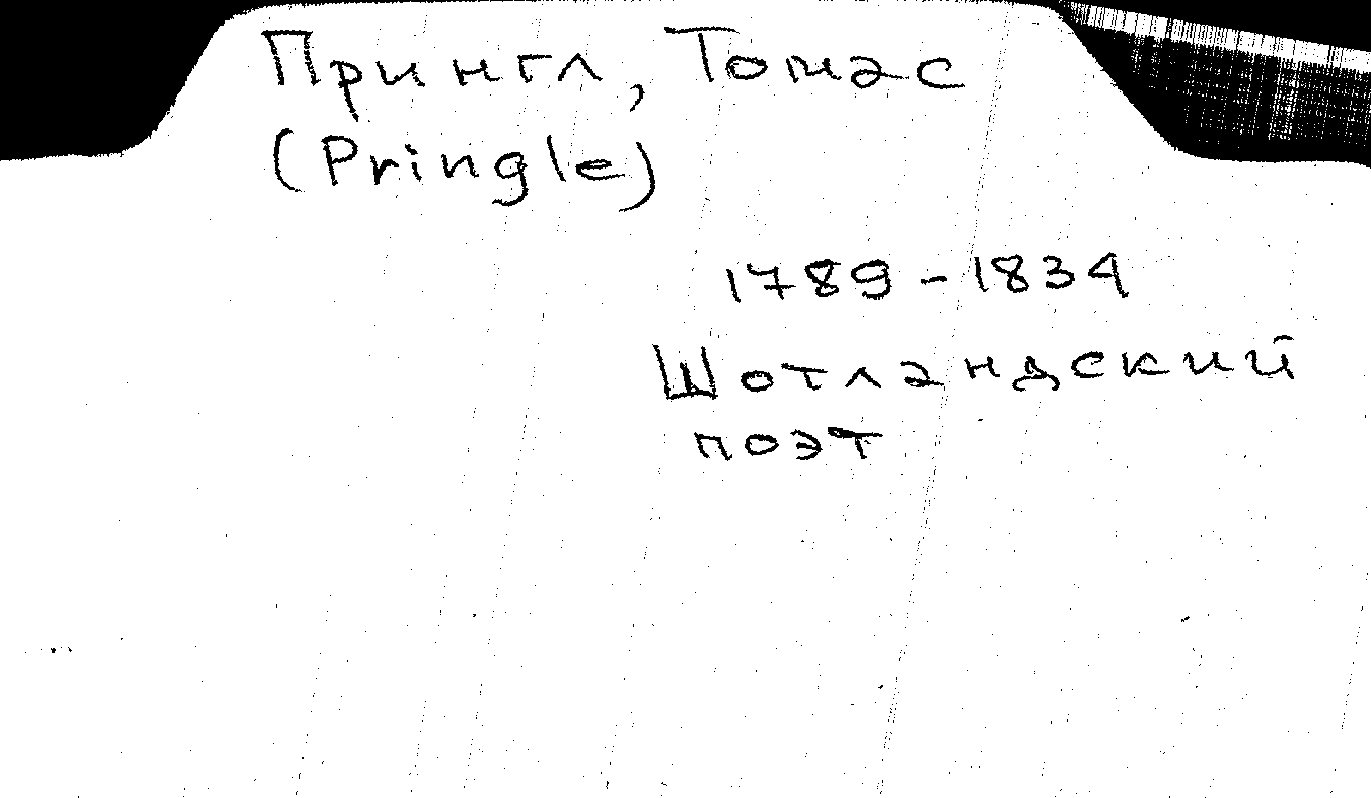 Прингл, Томас
(Pringle)
1789-1834
Шотландский
поэт